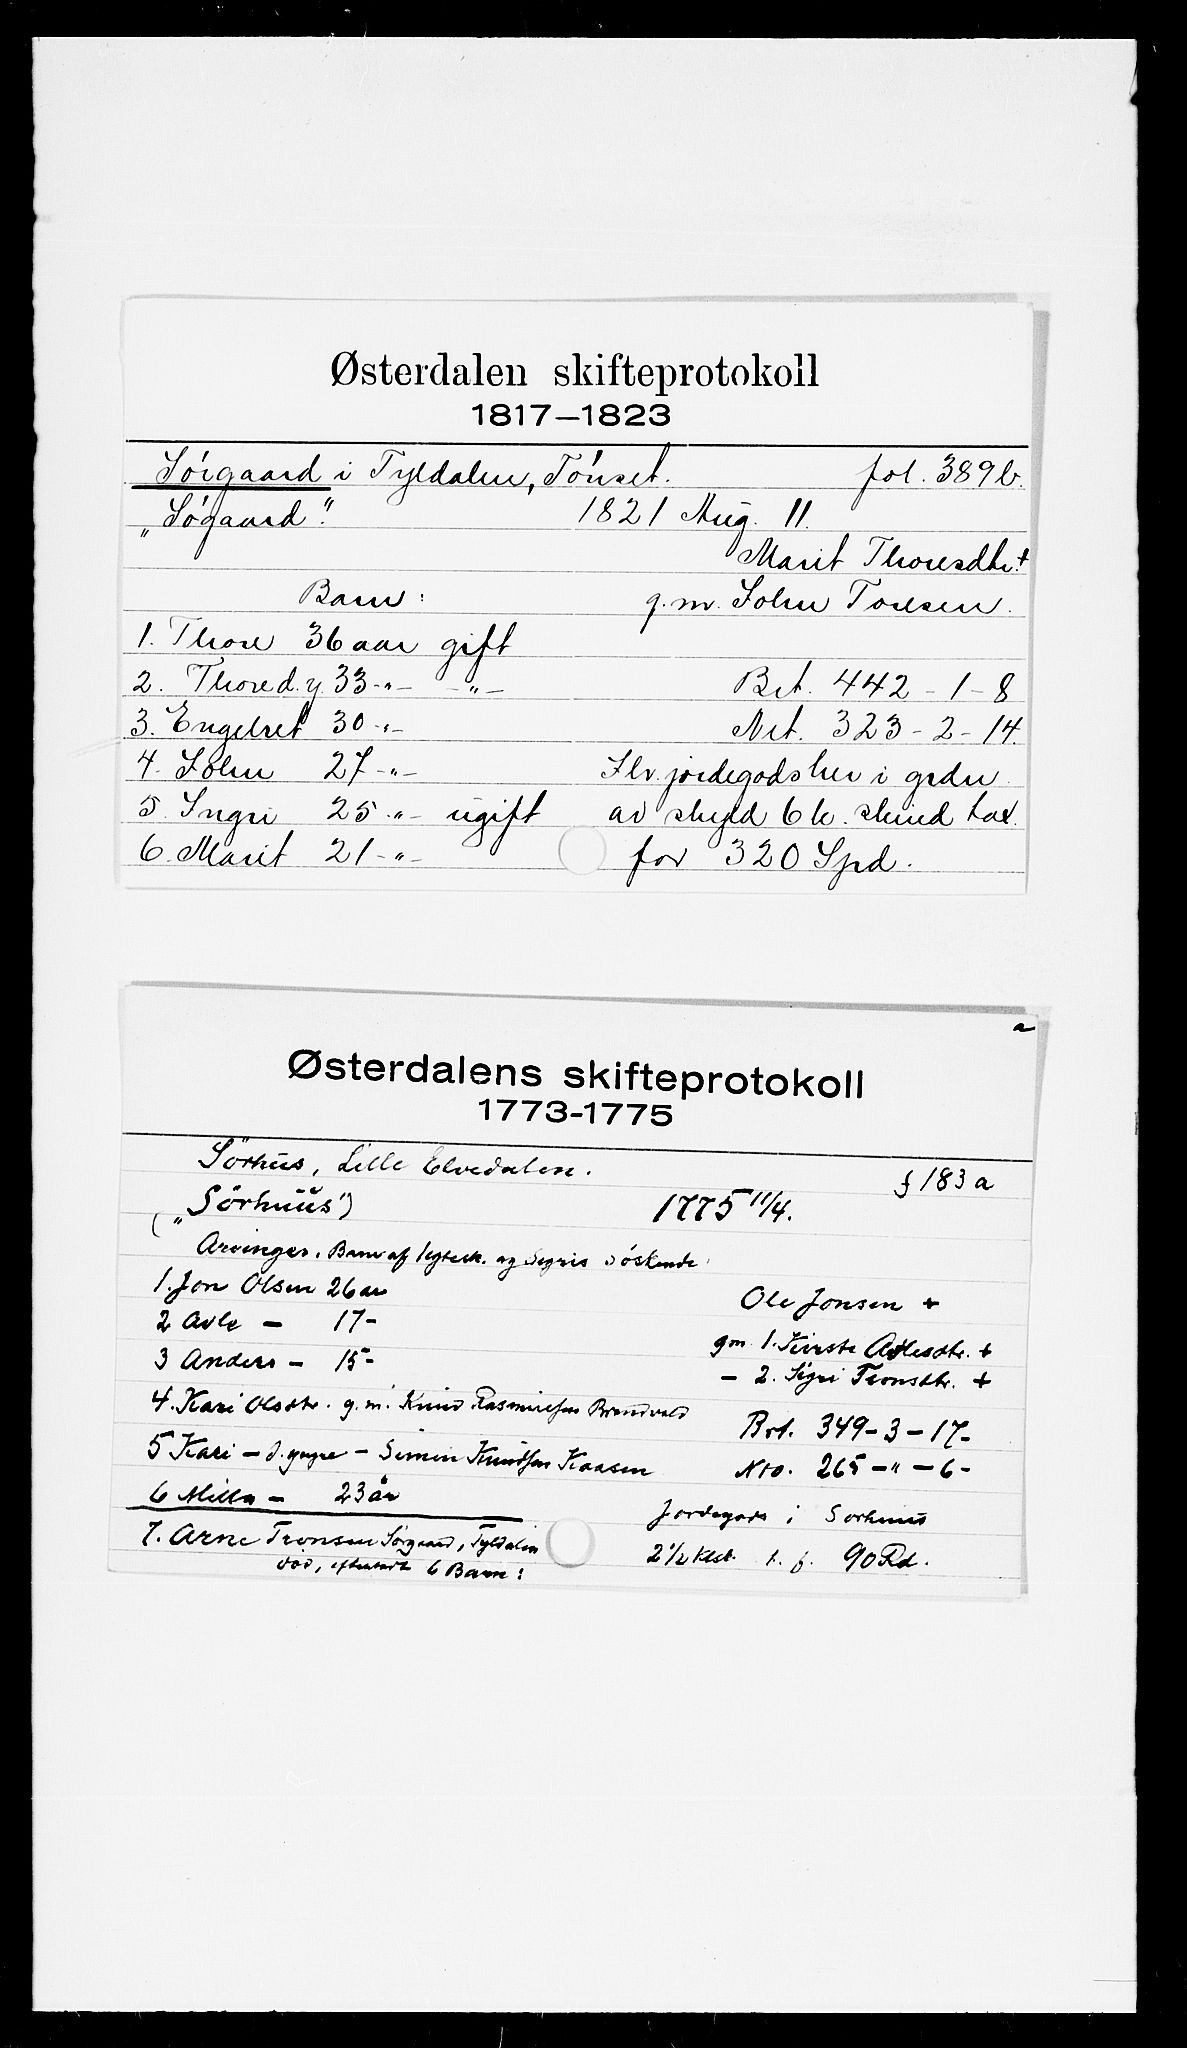 Østerdalen skifteprotokoll
1817–1823
Sörgaard i Tyldalen, Tönset. fol. 389b.
„Søgaard". 1821 Aug. 11.
Marit Thoresdtr. +
Barn: g.m. John Toresen.
1. Thore 36 aar gift
2. Thore d.y. 33 -„- -„- Brt. 442 - 1 - 8
3. Engebret 30 -„- Net. 323 - 2 - 14.
4. John 27 -„- jordegodsher i grdn
5. Ingri 25 -„- ugift av skyld 6 k. skind tax.
6. Marit 21 -„- for 320 Spd.
a
Østerdalens skifteprotokoll
1773-1775
Sörhus, Lille Elvedalen. f 183 a
(„Sörhuus") 1775 11/4.
Arvinger, Barn af 1 egtesk. og Segris Söskende
1. Jon Olsen 26 aar Ole Jonsen +
2 Avle — 17 - gm 1. Kirste Atlesdtr. +
3 Anders — 15 - — 2. Sigri Tronsdtr. +
4. Kari Olsdtr. g.m. Knud Rasmusen Brendvold Brt. 349 - 3 - 17 -
5 Kari — d. yngre — Simen Knudsen Kaasen Nto. 265 - „ - 6 -
6 Milla — 23 år Jordegods i Sorhuus
7. Arne Tronsen Sørgaard, Tyldalen 2 1/2 t. f. 90 Rd.
död, efterladt 6 Barn: